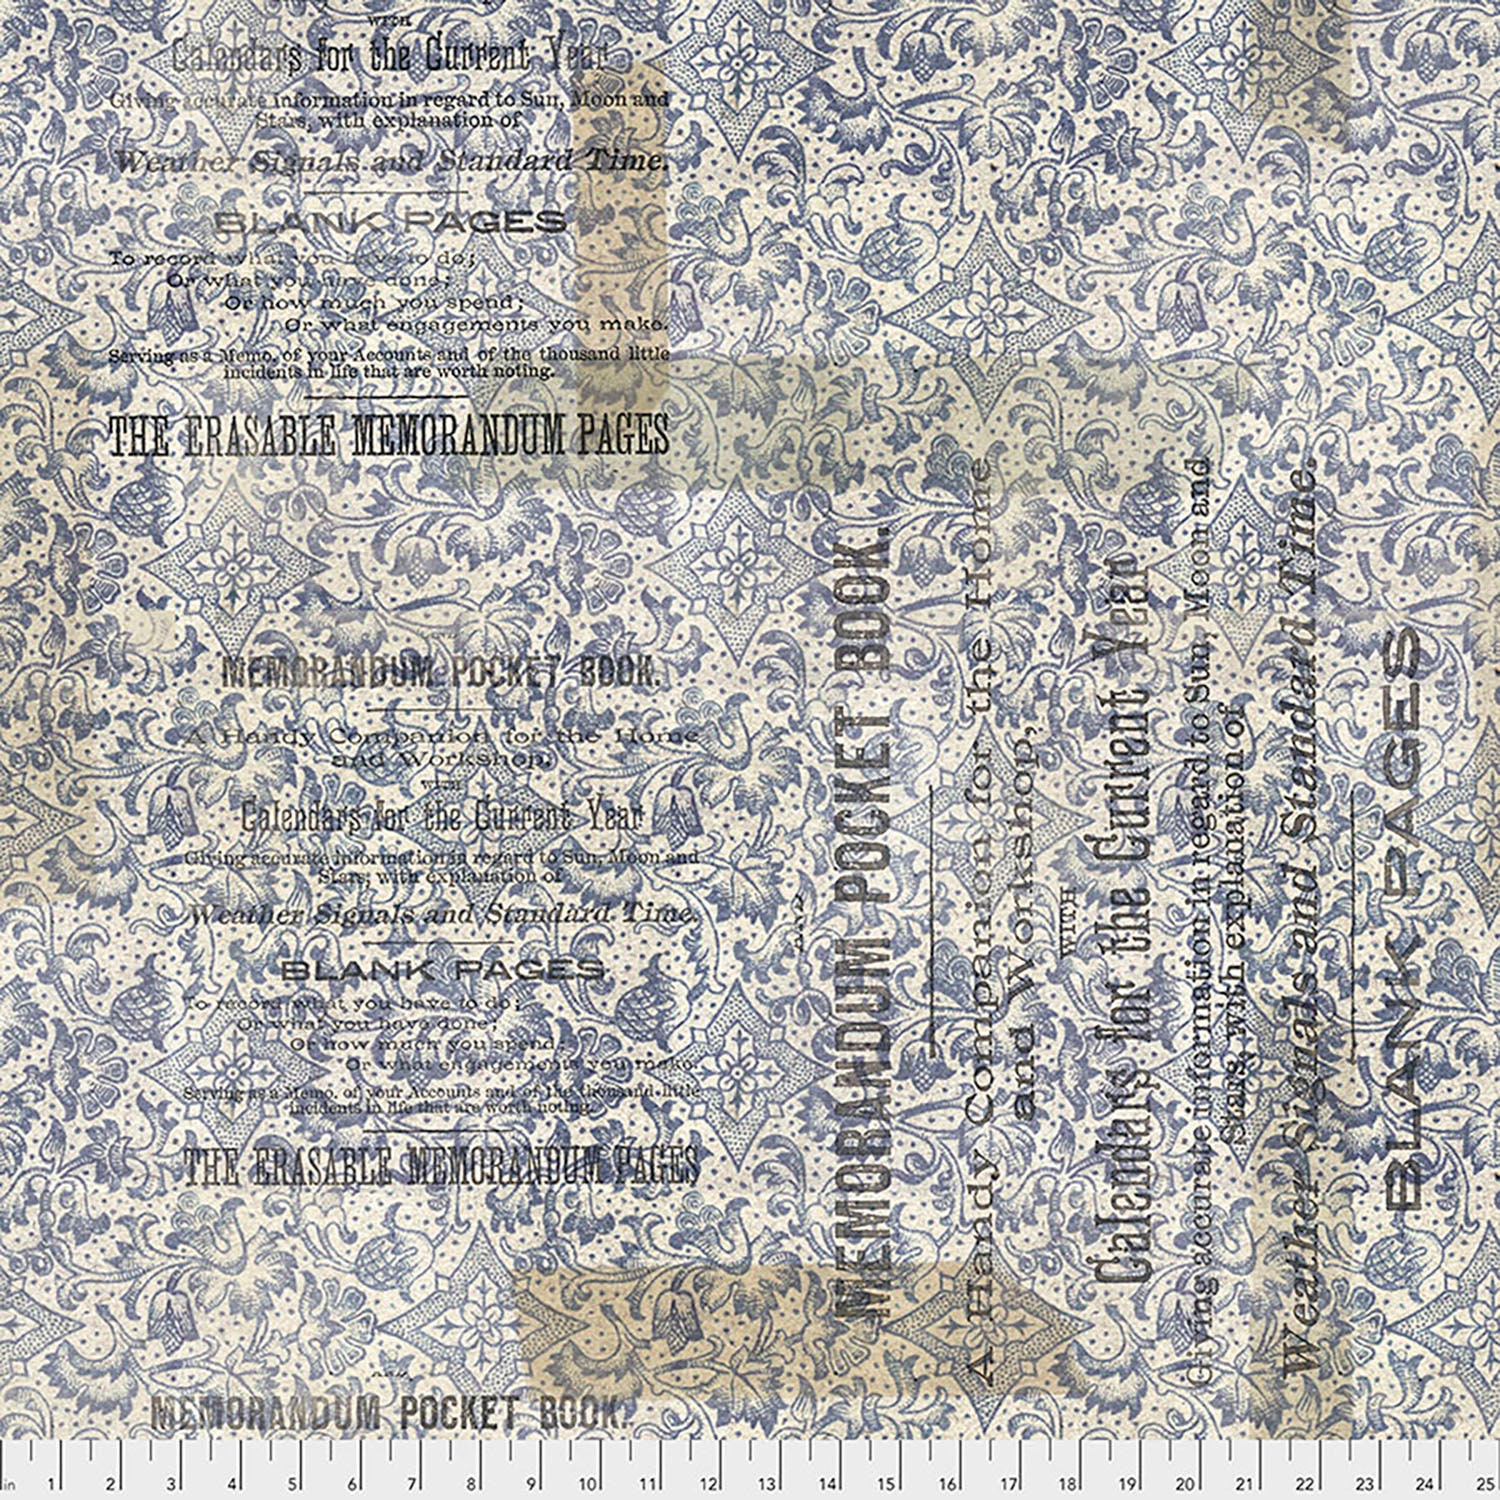 WITH
Calendars for the Current Year
Giving accurate information in regard to Sun, Moon and
Stars, with explanation of
Weather Signals and Standard Time.
BLANK PAGES
To record what you have to do;
Or what you have done;
Or how much you spend;
Or what engagements you make.
Serving as a Memo. of your Accounts and of the thousand little
incidents in life that are worth noting.
THE ERASABLE MEMORANDUM PAGES
MEMORANDUM POCKET BOOK.
A Handy Companion for the Home
and Workshop,
WITH
Calendars for the Current Year
Giving accurate information in regard to Sun, Moon and
Stars, with explanation of
Weather Signals and Standard Time.
BLANK PAGES
To record what you have to do;
Or what you have done;
Or how much you spend;
Or what engagements you make.
Serving as a Memo. of your Accounts and of the thousand little
incidents in life that are worth noting.
THE ERASABLE MEMORANDUM PAGES
MEMORANDUM POCKET BOOK.
MEMORANDUM POCKET BOOK.
A Handy Companion for the Home
and Workshop,
WITH
Calendars for the Current Year
Giving accurate information in regard to Sun, Moon and
Stars, with explanation of
Weather Signals and Standard Time.
BLANK PAGES
in 1 2 3 4 5 6 7 8 9 10 11 12 13 14 15 16 17 18 19 20 21 22 23 24 25